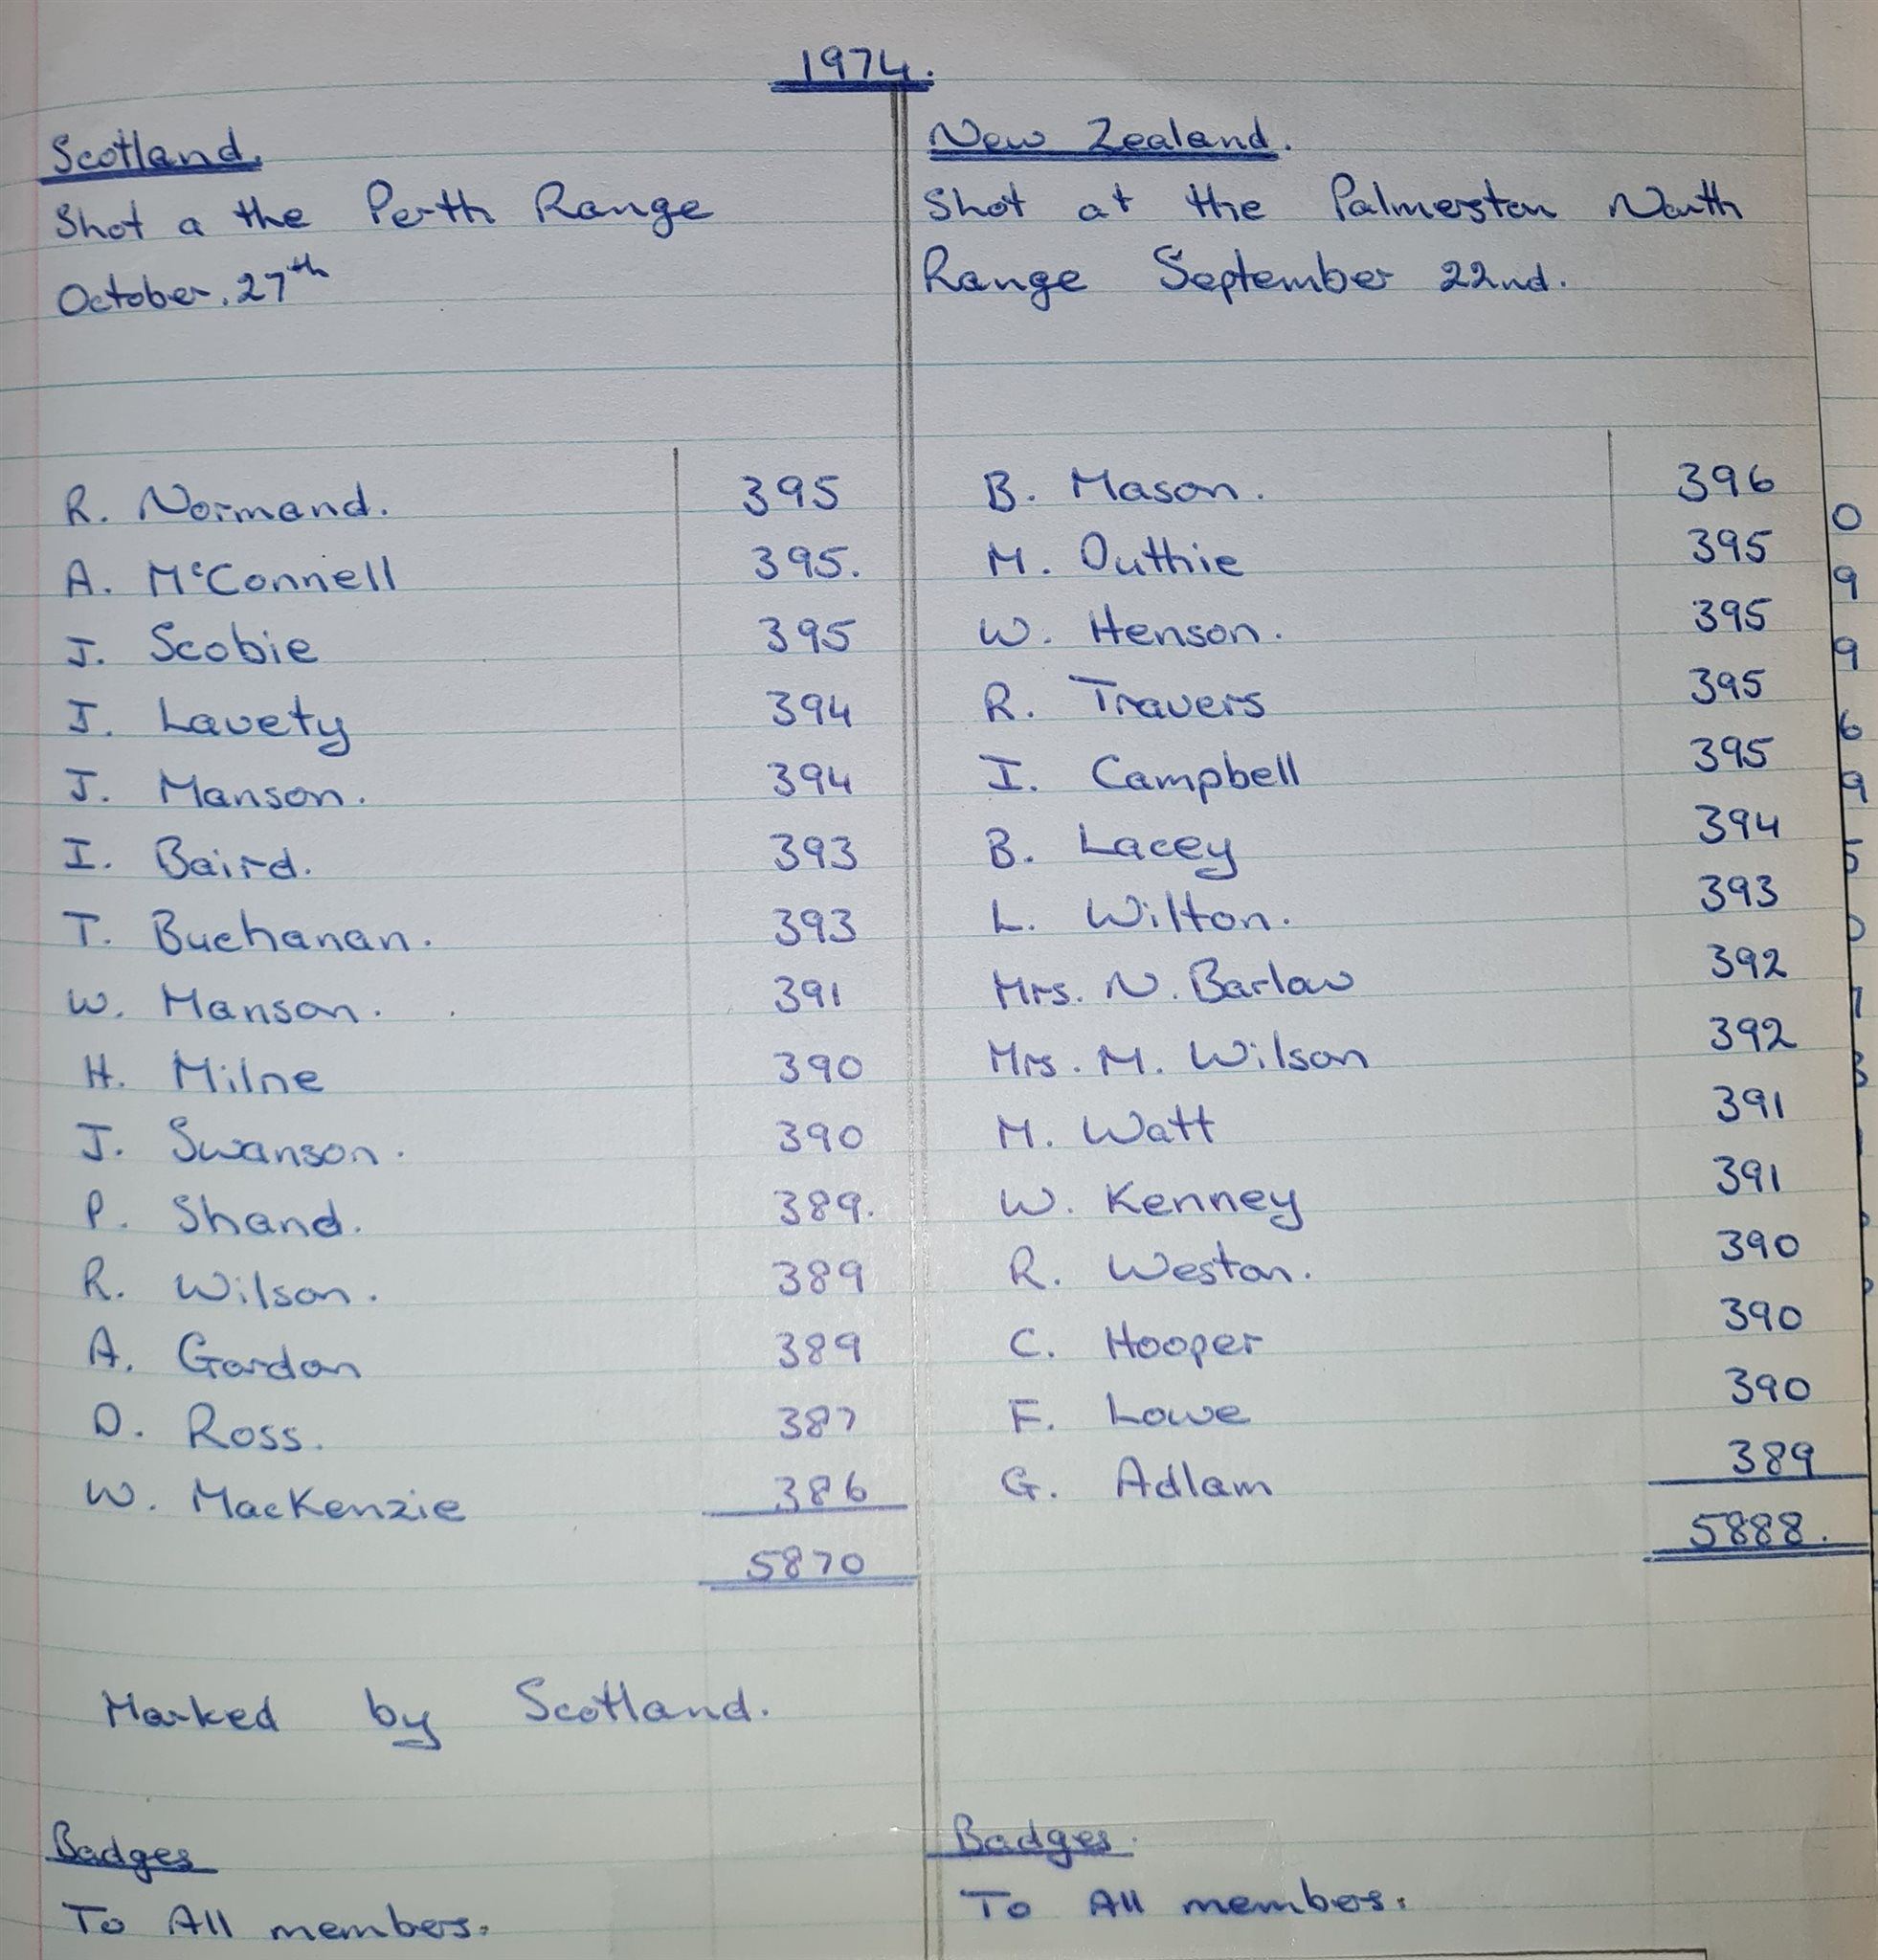 1974.
Scotland.
Shot a the Perth Range
October. 27th
R. Normand. 395
A. McConnell 395.
J. Scobie 395
J. Lavety 394
J. Manson. 394
I. Baird. 393
T. Buchanan. 393
W. Manson. 391
H. Milne 390
J. Swanson. 390
P. Shand. 389.
R. Wilson. 389
A. Gordon 389
D. Ross. 387
W. MacKenzie 386
5870
Marked by Scotland.
Badges
To All members.
New Zealand.
Shot at the Palmerston North
Range September 22nd.
B. Mason. 396
M. Duthie 395
W. Henson. 395
R. Travers 395
I. Campbell 395
B. Lacey 394
L. Wilton. 393
Mrs. N. Barlow 392
Mrs. M. Wilson 392
M. Watt 391
W. Kenney 391
R. Weston. 390
C. Hooper 390
F. Lowe 390
G. Adlam 389
5888.
Badges.
To All members.